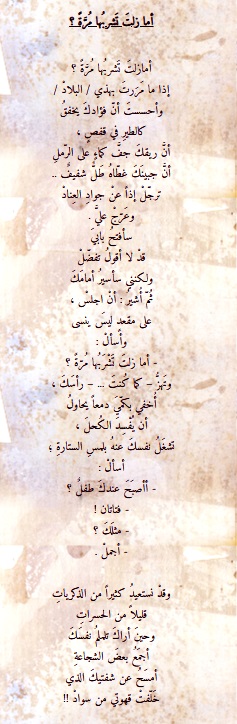 أما زلتَ تَشربُها مُرَّةً ؟
أمازلتَ تَشربُها مُرَّةً ؟
إذا ما مَررتَ بهذي / البلادْ /
وأحسستَ أنّ فؤادكَ يخفقُ
كالطيرِ في قفصٍ ،
أنّ ريقكَ جفَّ كماءٍ على الرّملِ
أنَّ جبينَكَ غطّاهُ طَلٌّ شفيفٌ ..
ترجّلْ إذاً عنْ جوادِ العنادْ
وعَرّجْ عليَّ .
سأفتح بابيَ
قدْ لا أقولُ تفضّلْ
ولكنني سأسيرُ أمامَكَ
ثُمّ أُشيرُ : أنْ اجلسْ ،
على مقعدٍ ليسَ ينسى
وأسألُ :
- أما زلتَ تَشْرَبُها مُرّةً ؟
وتَهزُّ – كما كنتَ ... – رأسَكَ ،
أُخفي بكُمِّيَ دمعاً يحاولُ
أن يُفْسِدَ الكُحلَ ،
تشغَلُ نفسكَ عنهُ بلمسِ الستارةِ ؛
أسألُ :
- أأصبَحَ عندكَ طفلٌ ؟
- فتاتان !
- مثلَكَ ؟
- أجملُ .
وقدْ نستعيدُ كثيراً من الذكرياتِ
قليلاً من الحسراتِ
وحينَ أراكَ تلملمُ نفسَكَ
أجمَعُ بعضَ الشجاعةِ
أمسَحُ عن شفتيكَ الذي
خلّفتْ قهوتي من سوادْ !!